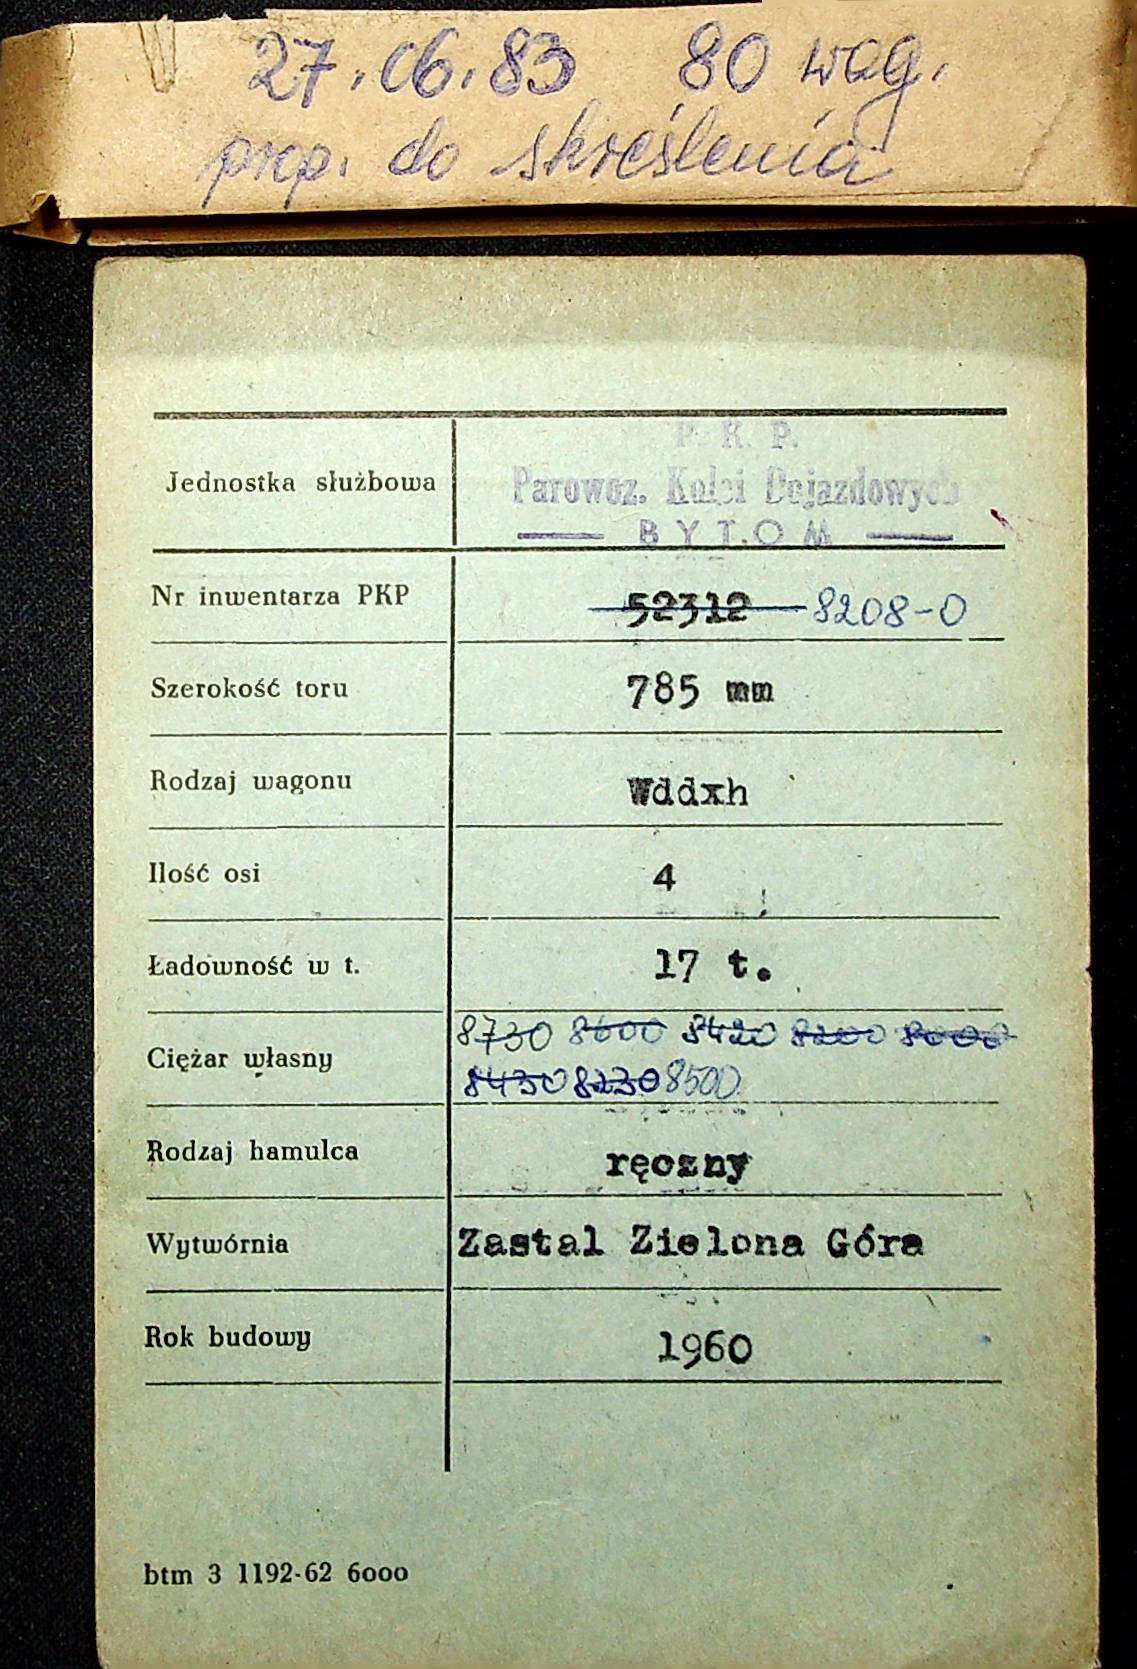 27.06.83 80 wag.
prop. do skreślenia
P. K. P.
Jednostka służbowa Parowoz. Kolei Dojazdowych
BYTOM
Nr inwentarza PKP 52312 8208-0
Szerokość toru 785 mm
Rodzaj wagonu Wddxh
Ilość osi 4
Ładowność w t. 17 t.
8730 8600 8420 8200 8000
Ciężar własny
8430 8230 8500
Rodzaj hamulca ręczny
Wytwórnia Zastal Zielona Góra
Rok budowy 1960
btm 3 1192-62 6000